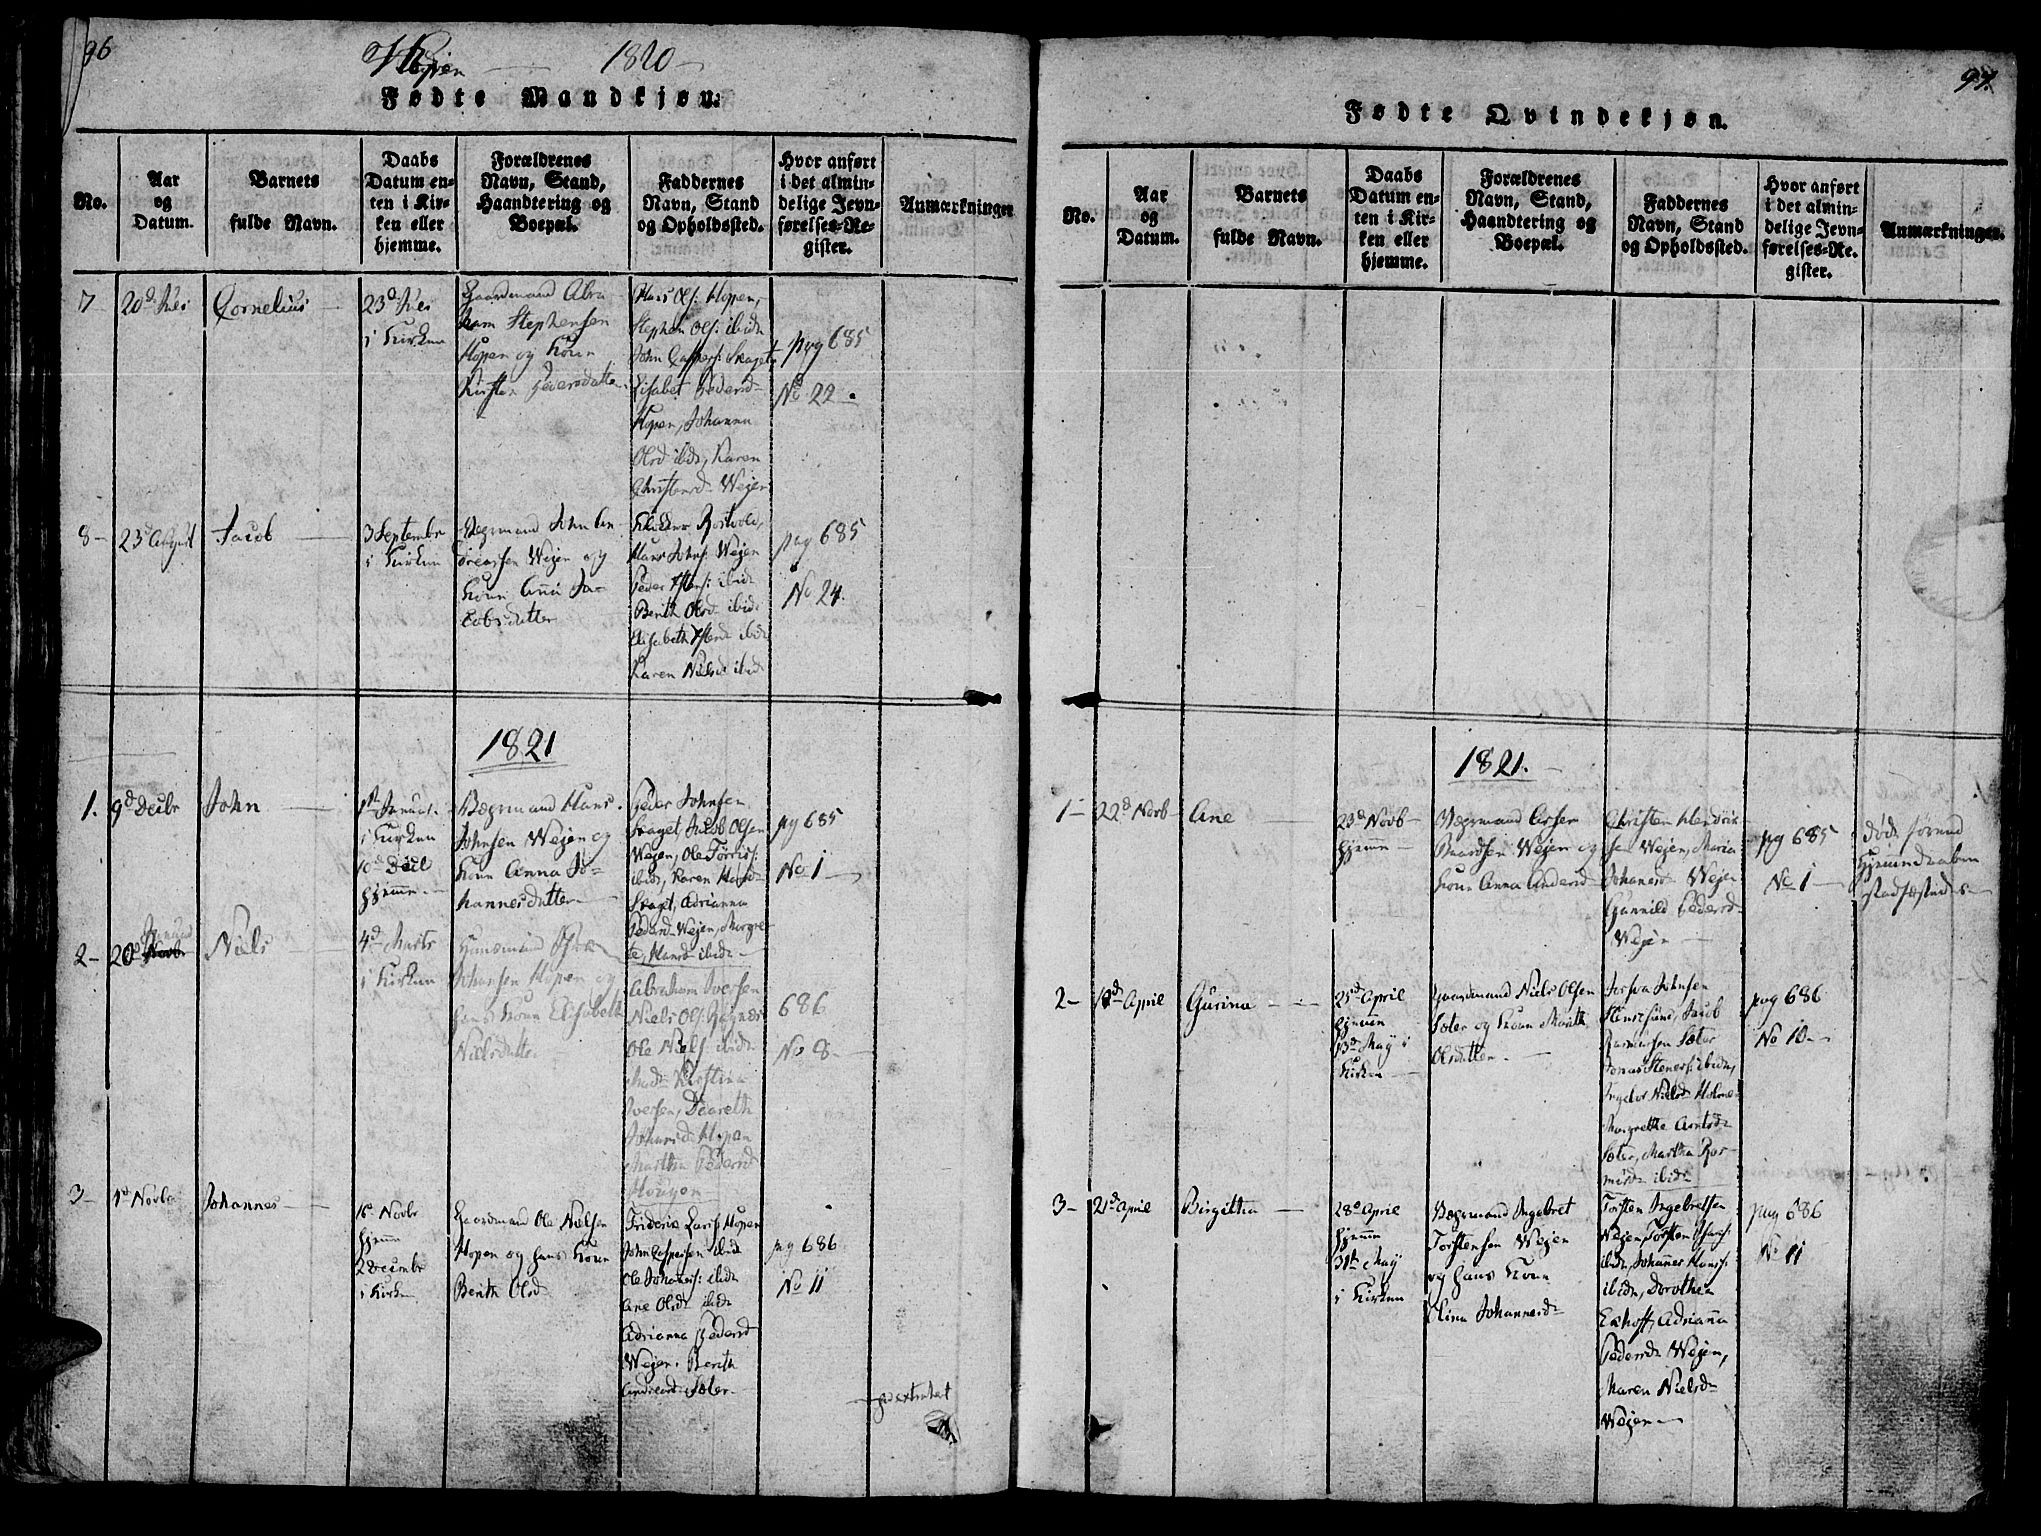 96
1820
Fødte Mandkjøn.
No.
Aar
og
Datum.
Barnets
fulde Navn.
Daabs
Datum en-
ten i Kir-
ken eller
hjemme.
Forældrenes
Navn, Stand,
Haandtering og
Boepæl.
Faddernes
Navn, Stand
og Opholdssted.
Hvor anført
i det almin-
delige Jevn-
førelses-Re-
gister.
Anmærkninger
7
20d Juli
Cornelius
23d Juli
i Kirken
Gaardmand Abra
ham Stephensen
Hopen og Kone
Kirsten Pedersdatter
Hans Ols: Hopen,
Stephen Ols: ibid
John Caspers: Skaget
Lisabet Pedersd
Hopen, Johanna
Olsd ibid, Karen
Christensd Wejen
pag 685
No 22
8
23d August
Jacob
3 Septembr
i Kirken
John An
dreassen Wejen og
Kone Ane Ja-
cobsdatter
Hans Johns: Wejen
Peder Ifvers: ibid
Berith Olsd ibid
Elisabeth ibid
Karen Nielsd ibid
pag 685
No 24.
1821
1.
9d Decbr
John
1st Januar
i Kirken
10d Decb
Hjemme
Hans
Johnsen Wejen og
Kone Anna Jo-
hannesdatter
Peder Johnsen
Skaget, Jacob Olsen
Wejen, Ole
ibid, Karen Hansd
Skaget, Adrianna
Pedersd Wejen, Margre
te Hansd ibid
pag 685
No 1
2
20d Novbr
Niels
4d Marts
i Kirken
Huusmand
Johansen Hopen og
hans Kone Elisabeth
Nielsdatter
Abraham Iversen
Niels Ols:
Ole Niels ibid
Mad: Kirstina
Iversen, Dorreth
Johansd Hopen
Martha Pedersd
Hougen
686
No 8
3
1d Novbr
Johannes
16 Novbr
Hjemm
2 Decembr
i Kirken
Gaardmand Ole Nielsen
Hopen og hans Kone
Berith Olsd
Friderik Larss: Hopen
John Caspersen ibid
Ole Johanss: ibid
Ane Olsd ibid
Adrianna Pedersd
Wejen. Berith
Andreasd Sæter
pag 686
No 11
extrahert
97.
Fødte Qvindekjøn.
No.
Aar
og
Datum.
Barnets
fulde Navn.
Daabs
Datum en-
ten i Kir-
ken eller
hjemme.
Forældrenes
Navn, Stand,
Haandtering og
Boepæl.
Faddernes
Navn, Stand
og Opholdssted.
Hvor anført
i det almin-
delige Jevn-
førelses-Re-
gister.
Anmærkninger.
1821.
1
22d Novb
Ane
23d Novb
Hjemm
Baardsen Wejen og
Kone Anna Andersd
Christen Hendrik
sen Wejen, Maria
Johanesd Wejen
Gunnild Pedersd
Wejen
pag 685
No 1
død førend
Hjemmedaaben
stadfæstedes
2
18d April
Gurina
25d April
Hjemmen
13d Maij i
Kirken
Gaardmand Niels Olsen
Sæter og Kone Marith
Olsdatter
Josva Johnsen
Jacob
Rasmussen Sæter
Jonas Steners: ibid,
Ingebor Nielsd Holme
Margrethe Arntsd
Sæter, Martha Ras
musd ibid
pag 686
No 10
3
21d April
Birgitta
28d April
Hjemm
31th Maij
i Kirken
Ingebret
Torstensen Wejen
og hans Kone
Elina Johannesd
Torsten Ingebretsen
Wejen, Torsten Hans:
ibid, Johannes Hans:
ibid, Dorothea
Exhoff, Adriana
Pedersd Wejen,
Maren Nielsd
Wejen
pag 686
No 11